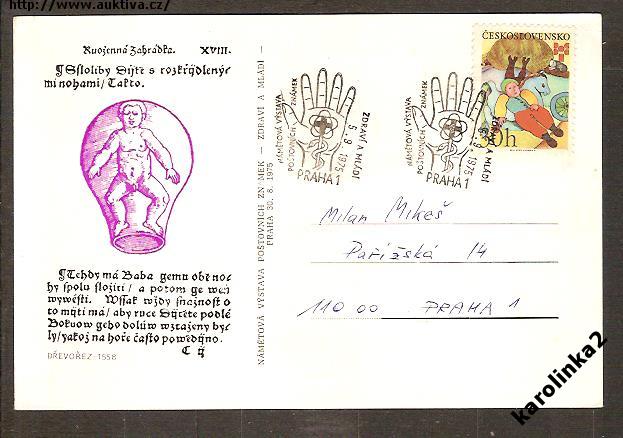 http://www.auktiva.cz/
Ruoženná Zahrádka. XVIII.
¶Stloliby Dijte s rozkřijdlenýr
mi nohami/ Takto.
¶Tehdy má Baba gemu obě nor
hy spolu složiti/ a potom ge wen
wywésti. Wssak wždy snažnost o
to mijti má/ aby ruce Dijtěte podlé
Bokuow geho dolůw wztaženy byr
ly/ yakož na hoře často powědijno.
C ij
DŘEVOŘEZ 1558
NÁMĚTOVÁ VÝSTAVA POŠTOVNÍCH ZN MEK — ZDRAVÍ A MLÁDÍ —
PRAHA 30. 8. 1975
NÁMĚTOVÁ VÝSTAVA
POŠTOVNÍCH ZNÁMEK
ZDRAVÍ A MLÁDÍ
5.9.1975
PRAHA 1
NÁMĚTOVÁ VÝSTAVA
POŠTOVNÍCH ZNÁMEK
ZDRAVÍ A MLÁDÍ
5.9.1975
PRAHA 1
ČESKOSLOVENSKO
h
Milan Mikeš
Pařížská 14
110 00 PRAHA 1
karolinka2